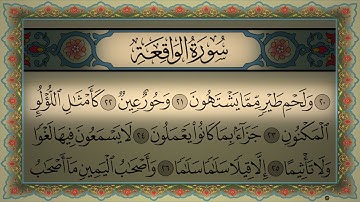 سُورَةُ الْوَاقِعَةِ
٢٠ وَلَحْمِ طَيْرٍ مِّمَّا يَشْتَهُونَ ٢١ وَحُورٌ عِينٌ ٢٢ كَأَمْثَٰلِ ٱللُّؤْلُؤِ
ٱلْمَكْنُونِ ٢٣ جَزَآءًۢ بِمَا كَانُوا۟ يَعْمَلُونَ ٢٤ لَا يَسْمَعُونَ فِيهَا لَغْوًا
وَلَا تَأْثِيمًا ٢٥ إِلَّا قِيلًا سَلَٰمًا سَلَٰمًا ٢٦ وَأَصْحَٰبُ ٱلْيَمِينِ مَآ أَصْحَٰبُ